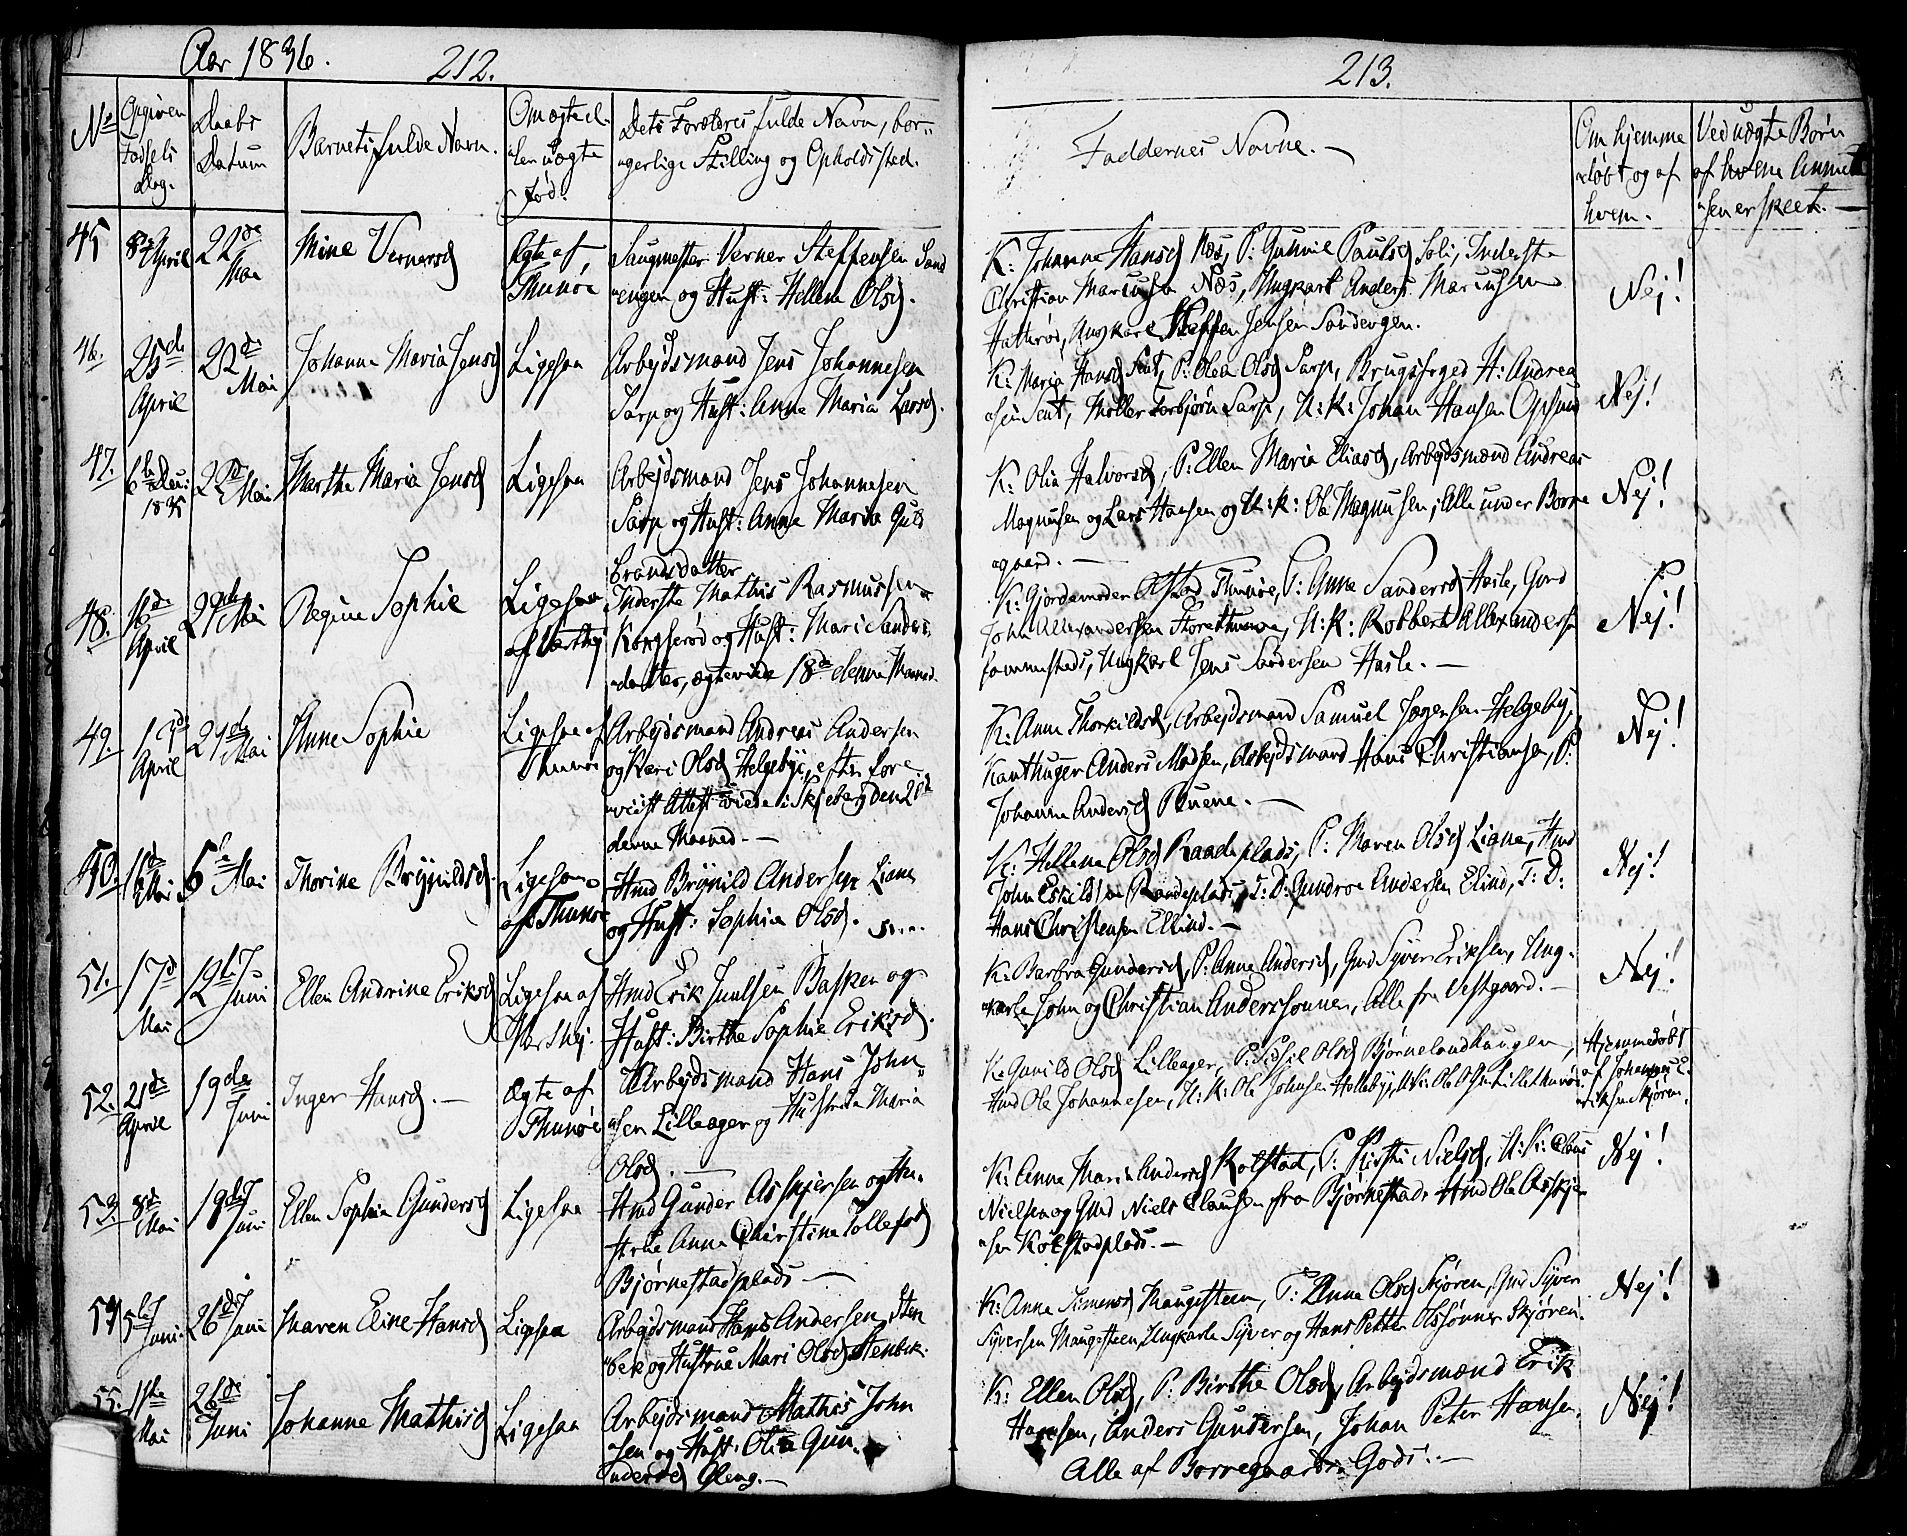 Aar 1836.
212.
No
Opgiven Fødsels Dag.
Daabs Datum
Barnets fulde Navn.
Om ægte el- ler uægte Fød.
Dets Forældres fulde Navn, bor-
gerlige Stilling og Opholdsted.
45
8de April
22de Mai
Mine Vernersd
Ægte af Thunøe
Saugmester Verner Steffensen Sand
engen og Hust: Hellene Olsd.
46.
25de April
22de Mai
Johanne Maria Jensd
Ligesaa
Arbejdsmand Jens Johannesen
Sarp og Hust: Anne Maria Larsd.
47.
1835
22de Mai
Marthe Maria Jensd
Ligesaa
Arbejdsmand Jens Johannesen
Sarp og Hust: Anne Maria Gul-
brandsdatter
48.
16de April
29de Mai
Regine Sophie
Ligesaa
Inderste Mathis Rasmussen
og Hust: Mari Sanders-
datter, ægteviede 18de denne Maaned.
49.
April
29de Mai
Anne Sophie
Ligesaa af Thunøe
Arbejdsmand Andreas Andersen
og Kari Olsd Helgebye, efter fore
viist Attest viede i Skjeberg den
denne Maaned.—
50.
Mai
5te Mai
Thorine Brynildsd.
Ligesaa af Thunøe
Hmd Brynild Andersen Liane
og Hust: Sophia Olsd.
51.
17de Mai
12te Juni
Ellen Andrine Eriksd
Ligesaa af
Hmd Erik Juulsen Basken og
Hust: Birthe Sophie Eriksd.
52.
21de April
19de Juni
Inger Hansd.—
Ægte af Thunøe
Arbejdsmand Hans John-
sen Lilleager og Hustrue Maria
Olsd.—
53.
8de Mai
19de Juni
Ellen Sophia Gundersd
Ligesaa
Hmd Gunder Asskjersen og Hu-
strue Anne Christine Tollefsd
Bjørnestadplads—
54
5te Juni
26de Juni
Maren Eline Hansd
Ligesaa
Arbejdsmand Hans Andersen, Sten
bek og Hustrue Mari Olsd Stenbek.
55.
11te Mai
26de Juni
Johanne Mathisd
Ligesaa
Arbejdsmand Mathis John
sen og Hust: Olia Gun-
dersd Oleng.—
213.
Faddernes Navne.—
Om hjemme
døbt og af
hvem.
Ved uægte Børn
af hvem Anmel
sen er skeet.—
K: Johanne Hansd Næs, P: Gunnil Paulsd Soli, Inderste
Christian Marcusen Næs, Ungkarl Anders Marcusen
Hatterød, Ungkarl Steffen Jensen Sandengen.
Nej!
K: Maria Hansd, P: Olea Olsd Sarp, Brugsfoged H: Andrea
sen, Møller Torbjørn Sarp, U:K: Johan Hansen Opsund
Nej!
K: Olia Halvorsd, P: Ellen Maria Eliasd, Arbejdsmænd Andreas
Magnusen og Lars Hansen og U:K: Ole Magnusen, Alle under Borre
gaard.—
Nej!
K: Gjordemoder Thunøe, P: Anne Sandersd Hasle, Gmd
John Allexandersen Storethunøe, U:K: Robbert Allexandersen
sammesteds, Ungkarl Jens Sandersen Hasle.—
Nej!
K: Anne Thorkildsd, Arbejdsmand Samuel Jørgensen Helgebye,
Anders Madsen, Arbejdsmand Hans Christiansen, P:
Johanne Andersd Buene.—
Nej!
K: Hellene Olsd Raadeplads, P: Maren Olsd Liane, Hmd
John Eskildsen Raadeplads, T:D: Gundroe Andersen Elind, T:D:
Hans Christensen Ellind.—
Nej!
K: Barbra Gundersd, P: Anne Andersd, Gmd Syver Eriksen, Ung-
karle John og Christian Anderssønner, Alle fra Vestgaard.—
Nej!
K: Gunild Olsd Lilleager, P: Sissil Olsd Bjørnelandhaugen,
Hmd Ole Johannesen, U:K: Ole Johnsen Hollebye, U:K: Ole Olsen Lillethunøe.
Hjemmedøbt
af Johannes E-
riksen Skjøren.
K: Anne Maria Andersd Kolstad, P: Kirsti Nielsd, U:K: Claus
Nielsen og Gmd Niels Clausen fra Bjørnestad, Hmd Ole Asskjer
sen Kolstadplads.—
Nej!
K: Anne Simensd Haugesteen, P: Anne Olsd Skjøren, Gmd Syver
Syversen Haugesteen, Ungkarle Syver og Hans Petter Olssønner Skjøren.
Nej!
K: Ellen Olsd, P: Birthe Olsd, Arbejdsmænd Erik
Hansen, Anders Gundersen, Johan Peter Hansen.
Alle af Borregaards Gods.—
Nej!